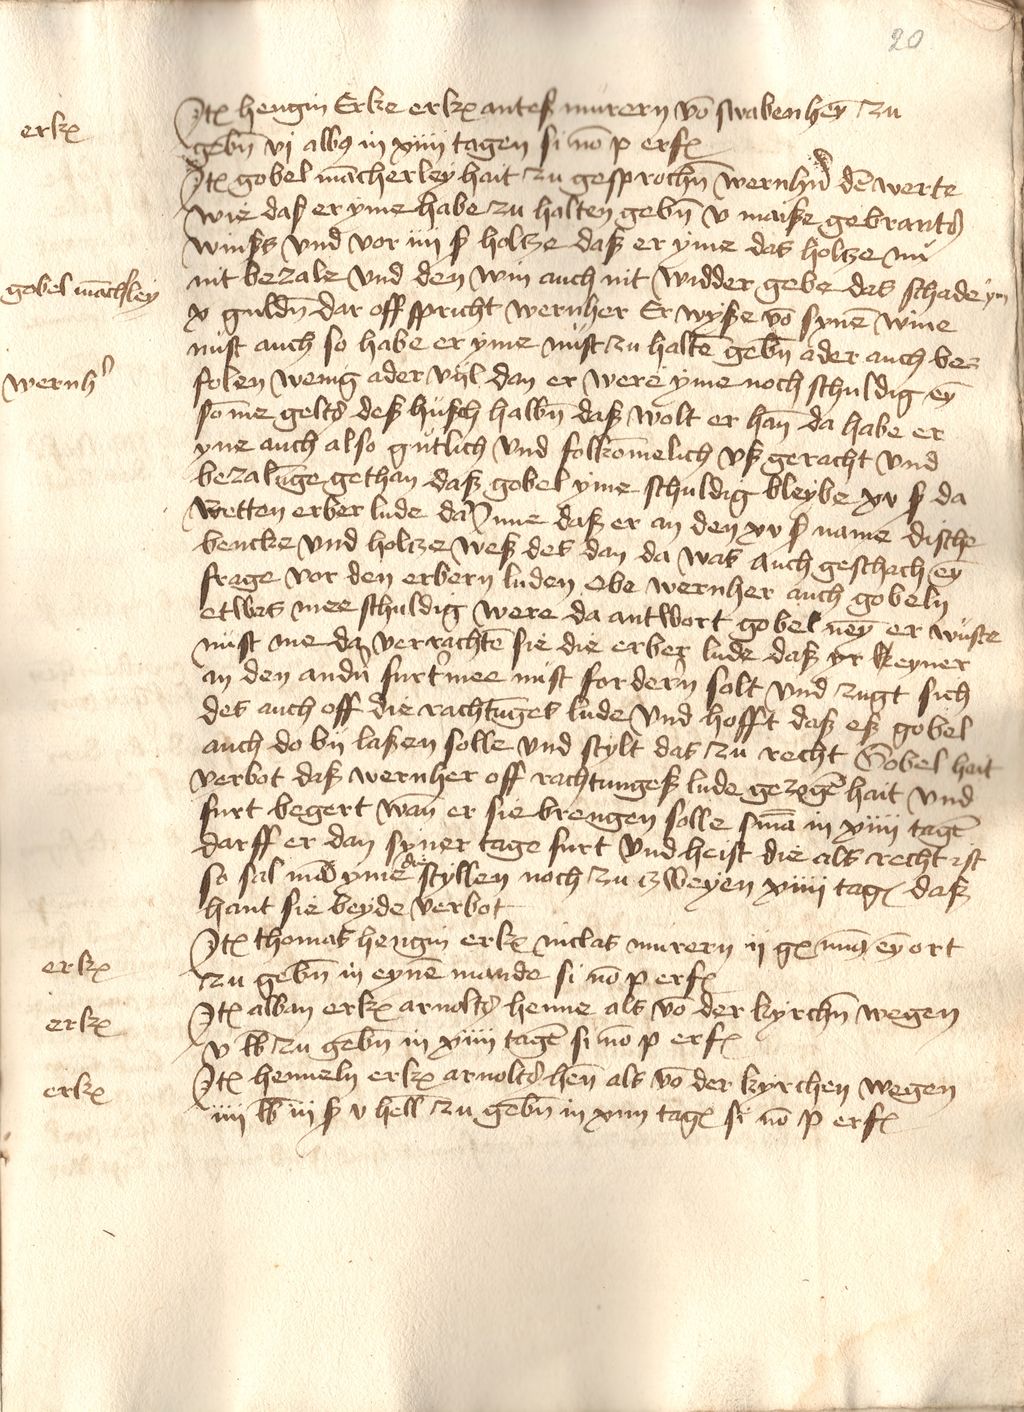 20
erkꝫ
Itꝫ hengin Erke erkꝫ antesß murern võ swabenheȳ zu
gebñ vj albꝯ in xiiij tagen si nõ p erfꝫ
Itꝫ gobel mãcherley hait zu gesprochñ wernhñ dẽ werte
wie daß er yme habe zu halten gebñ v maiße gebrants
winßs vnd vor iiij ß holtze daß er yme das holtze nu
gobel mãchley
nit bezale vnd den win auch nit widder gebe das schade ym
x guldñ dar off spricht wernher Er wyße võ synẽ wine
nust auch so habe er yme nust zu haltẽ gebñ ader auch be=
wernhʼ
folen wenig ader vyl dan er were yme noch schuldig eȳ
som̃e gelts deß hußs halbñ daß wolt er hañ da habe er
yne auch also gutlich vnd folkom̃elich vß geracht vnd
bezalũge gethan daß gobel yme schuldig bleybe xv ß da
retten erber lude dar Inne daß er an den xv ß name dische
bencke vnd holtze weß des dan da was auch geschach eȳ
frage vor den erbern luden Obe wernher auch gobeln
etwes mee schuldig were da antwort gobel neȳ er wuste
nust me da verrachtẽ sie die erber lude daß yr keyner
an den andñ furtʼmee nust fordern solt vnd zugt sich
des auch off die rachtũges lude vnd hofft daß eß gobel
auch do by laßen solle vnd stylt das zu recht Gobel heit
verbot daß wernher off rachtungeß lude gezogẽ hait vnd
furt begert wañ er sie brengen solle smã in xiiij tagẽ
darff er dan syner tage furt vnd heist die als recht ist
so sal mã yme die styllen noch zu zweyen xiiij tagꝫ daß
hant sie beyde verbot
Itꝫ thomas hengin erkꝫ niclas murern ij gꝫ mĩꝯ eȳ ort
erkꝫ
zu gebñ in eynẽ mande si nõ p erfꝫ
Itꝫ alban erkꝫ arnolts henne als võ der kyrchñ wegen
erkꝫ
v lb zu gebñ in xiiij tagẽ si nõ p erfꝫ
Itꝫ henneln erkꝫ arnolts heñ als võ der kyrchen wegen
erkꝫ
iiij lb iij ß v hell zu gebñ in xiiij tagꝫ si nõ p erfꝫ